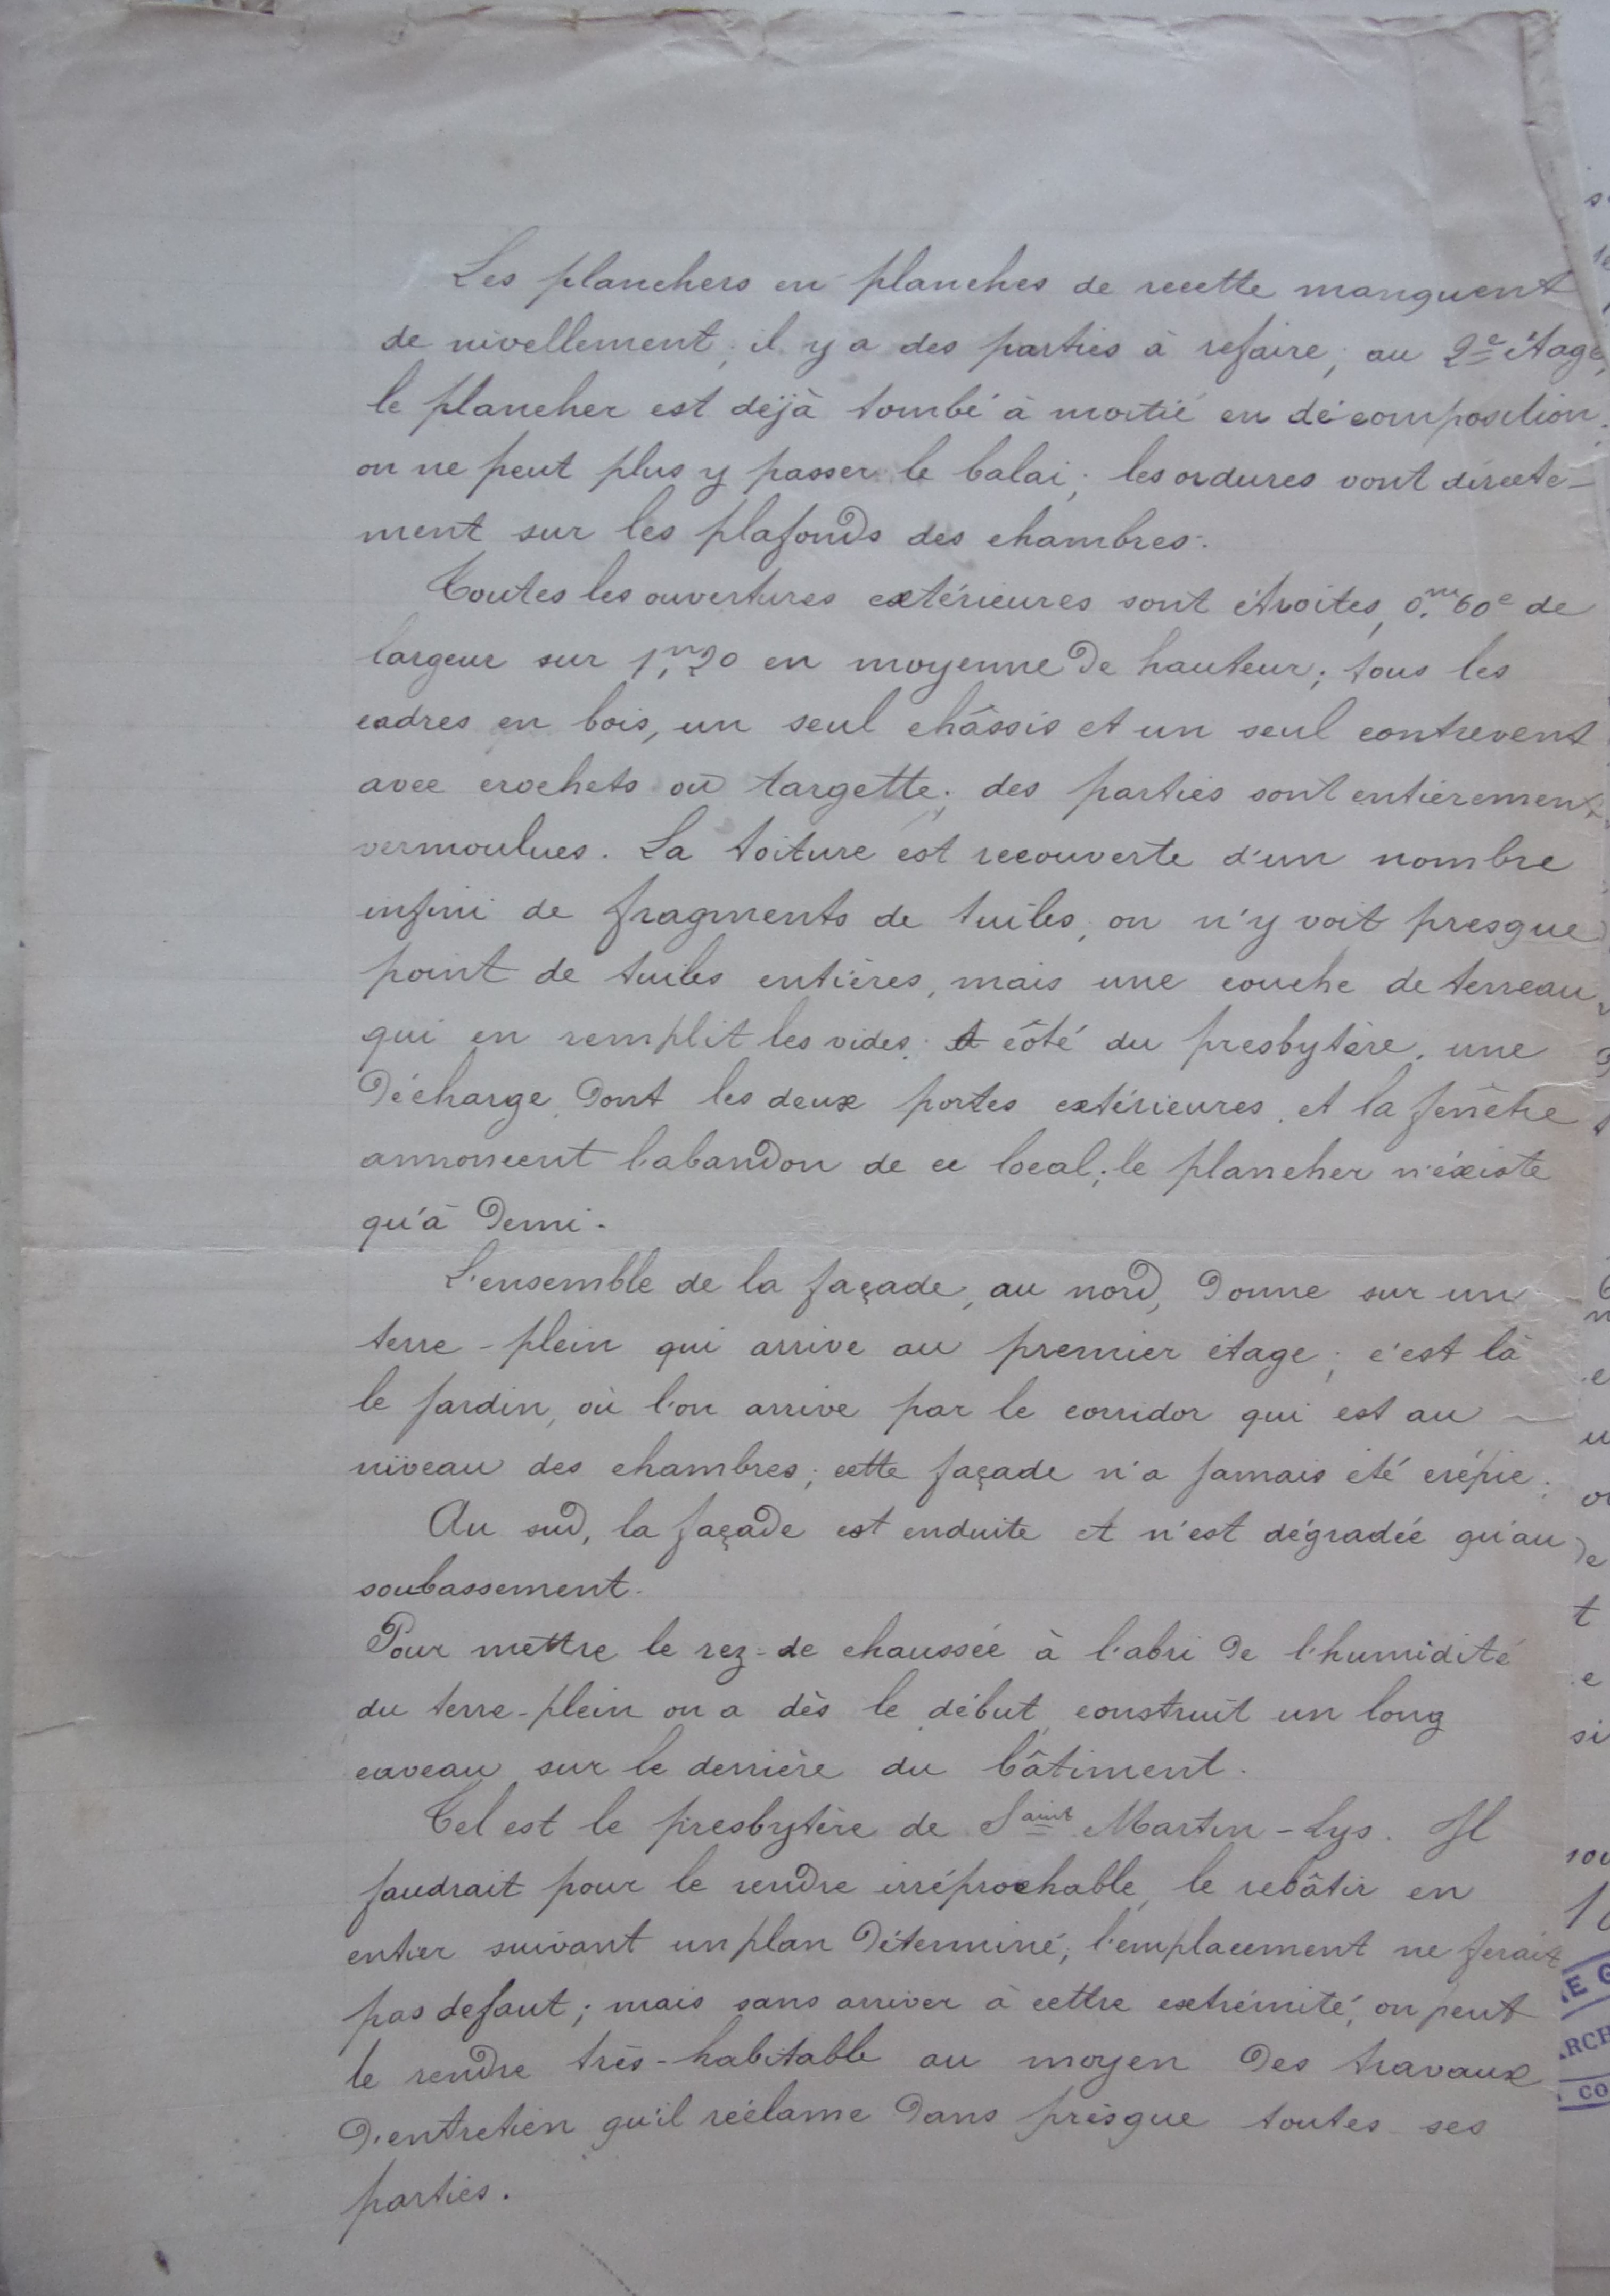 Les planchers en planches de recette manquent
de nivellement; il y a des parties à refaire; au 2e étage,
le plancher est déjà tombé à moitié en décomposition;
on ne peut plus y passer le balai; les ordures vont directe-
ment sur les plafonds des chambres.
Toutes les ouvertures extérieures sont étroites, 0,m60c de
largeur sur 1,m20 en moyenne de hauteur; tous les
cadres en bois, un seul châssis et un seul contrevent
avec crochets ou targette; des parties sont entièrement
vermoulues. La toiture est recouverte d'un nombre
infini de fragments de tuiles, on n'y voit presque
point de tuiles entières, mais une couche de terreau
qui en remplit les vides. A côté du presbytère, une
décharge dont les deux portes extérieures, et la fenêtre
annoncent l'abandon de ce local; le plancher n'éxiste
qu'à demi.
L'ensemble de la façade, au nord, donne sur un
terre-plein qui arrive au premier étage; c'est là
le jardin, où l'on arrive par le corridor qui est au
niveau des chambres; cette façade n'a jamais été crépie.
Au sud, la façade est enduite et n'est dégradée qu'au
soubassement.
Pour mettre le rez-de chaussée à l'abri de l'humidité
du terre-plein on a dès le début construit un long
caveau sur le derrière du bâtiment.
Tel est le presbytère de Saint Martin-Lys. Il
faudrait pour le rendre irréprochable, le rebâtir en
entier suivant un plan déterminé; l'emplacement ne ferait
pas defaut; mais sans arriver à cettre extrémité, on peut
le rendre très-habitable au moyen des travaux
d'entretien qu'il réclame dans presque toutes ses
parties.